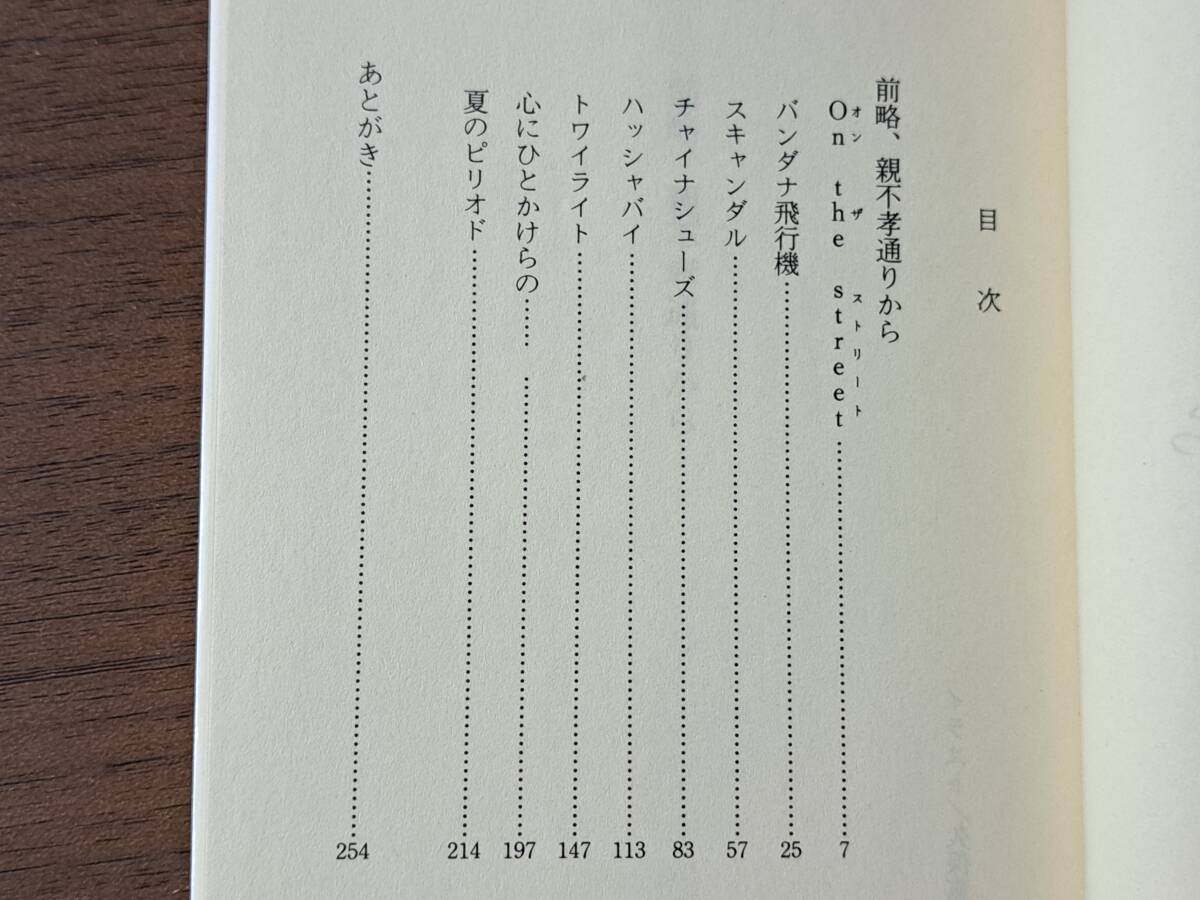 目次
前略、親不孝通りから
On the street……7
オン ザ ストリート
バンダナ飛行機……25
スキャンダル……57
チャイナシューズ……83
ハッシャバイ……113
トワイライト……147
心にひとかけらの…… ……197
夏のピリオド……214
あとがき……254